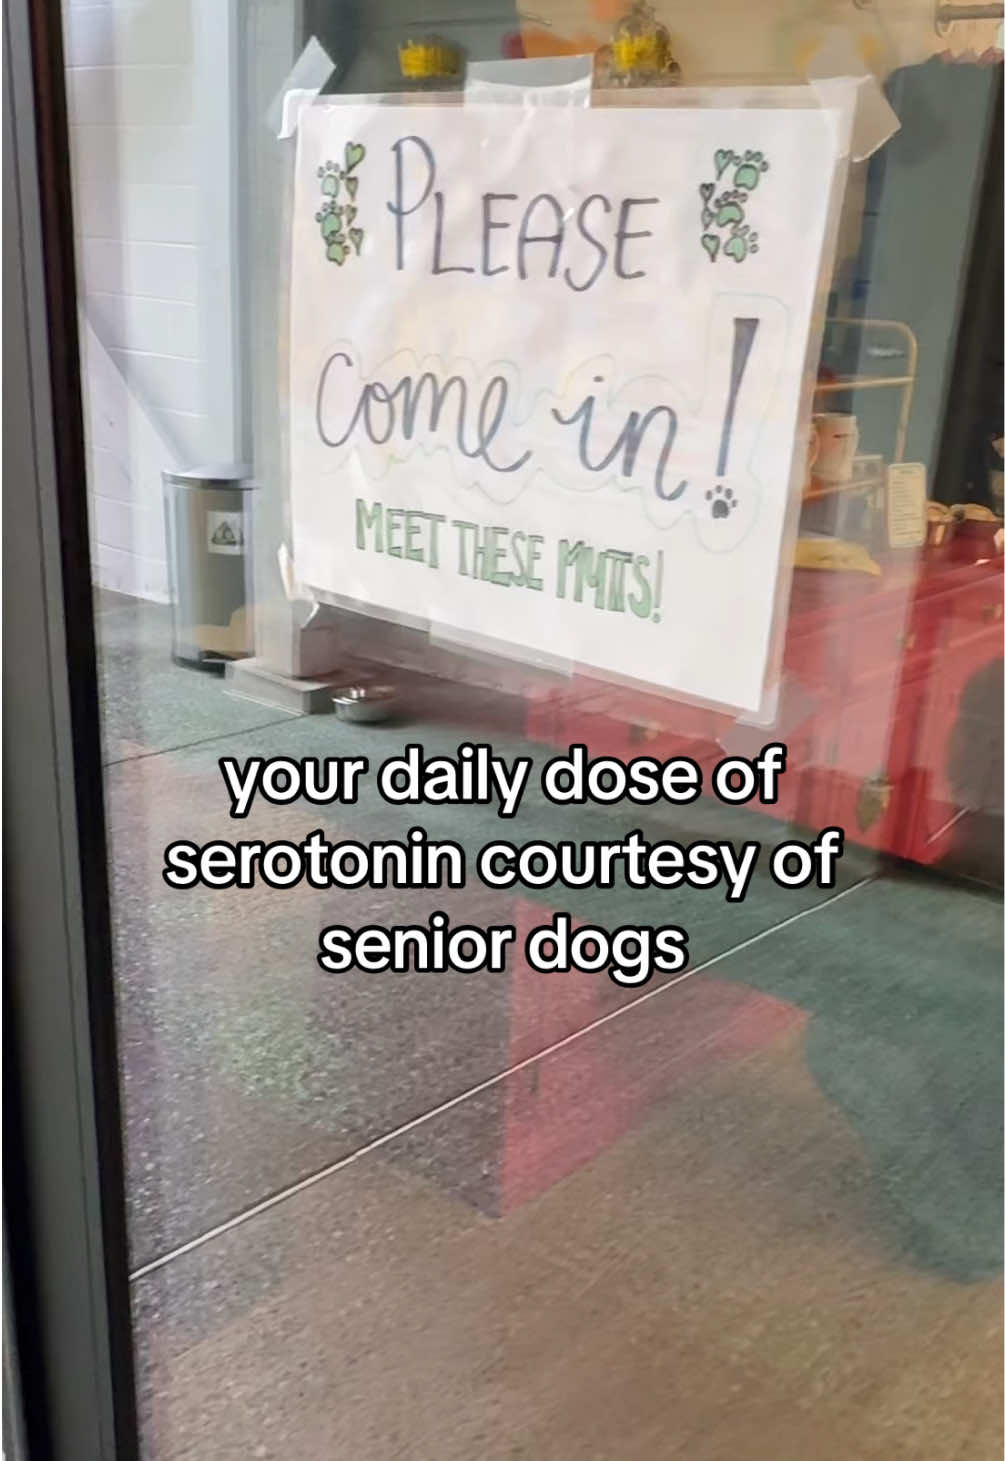 PLEASE
come in!
MEET THESE MUTTS!
your daily dose of
serotonin courtesy of
senior dogs